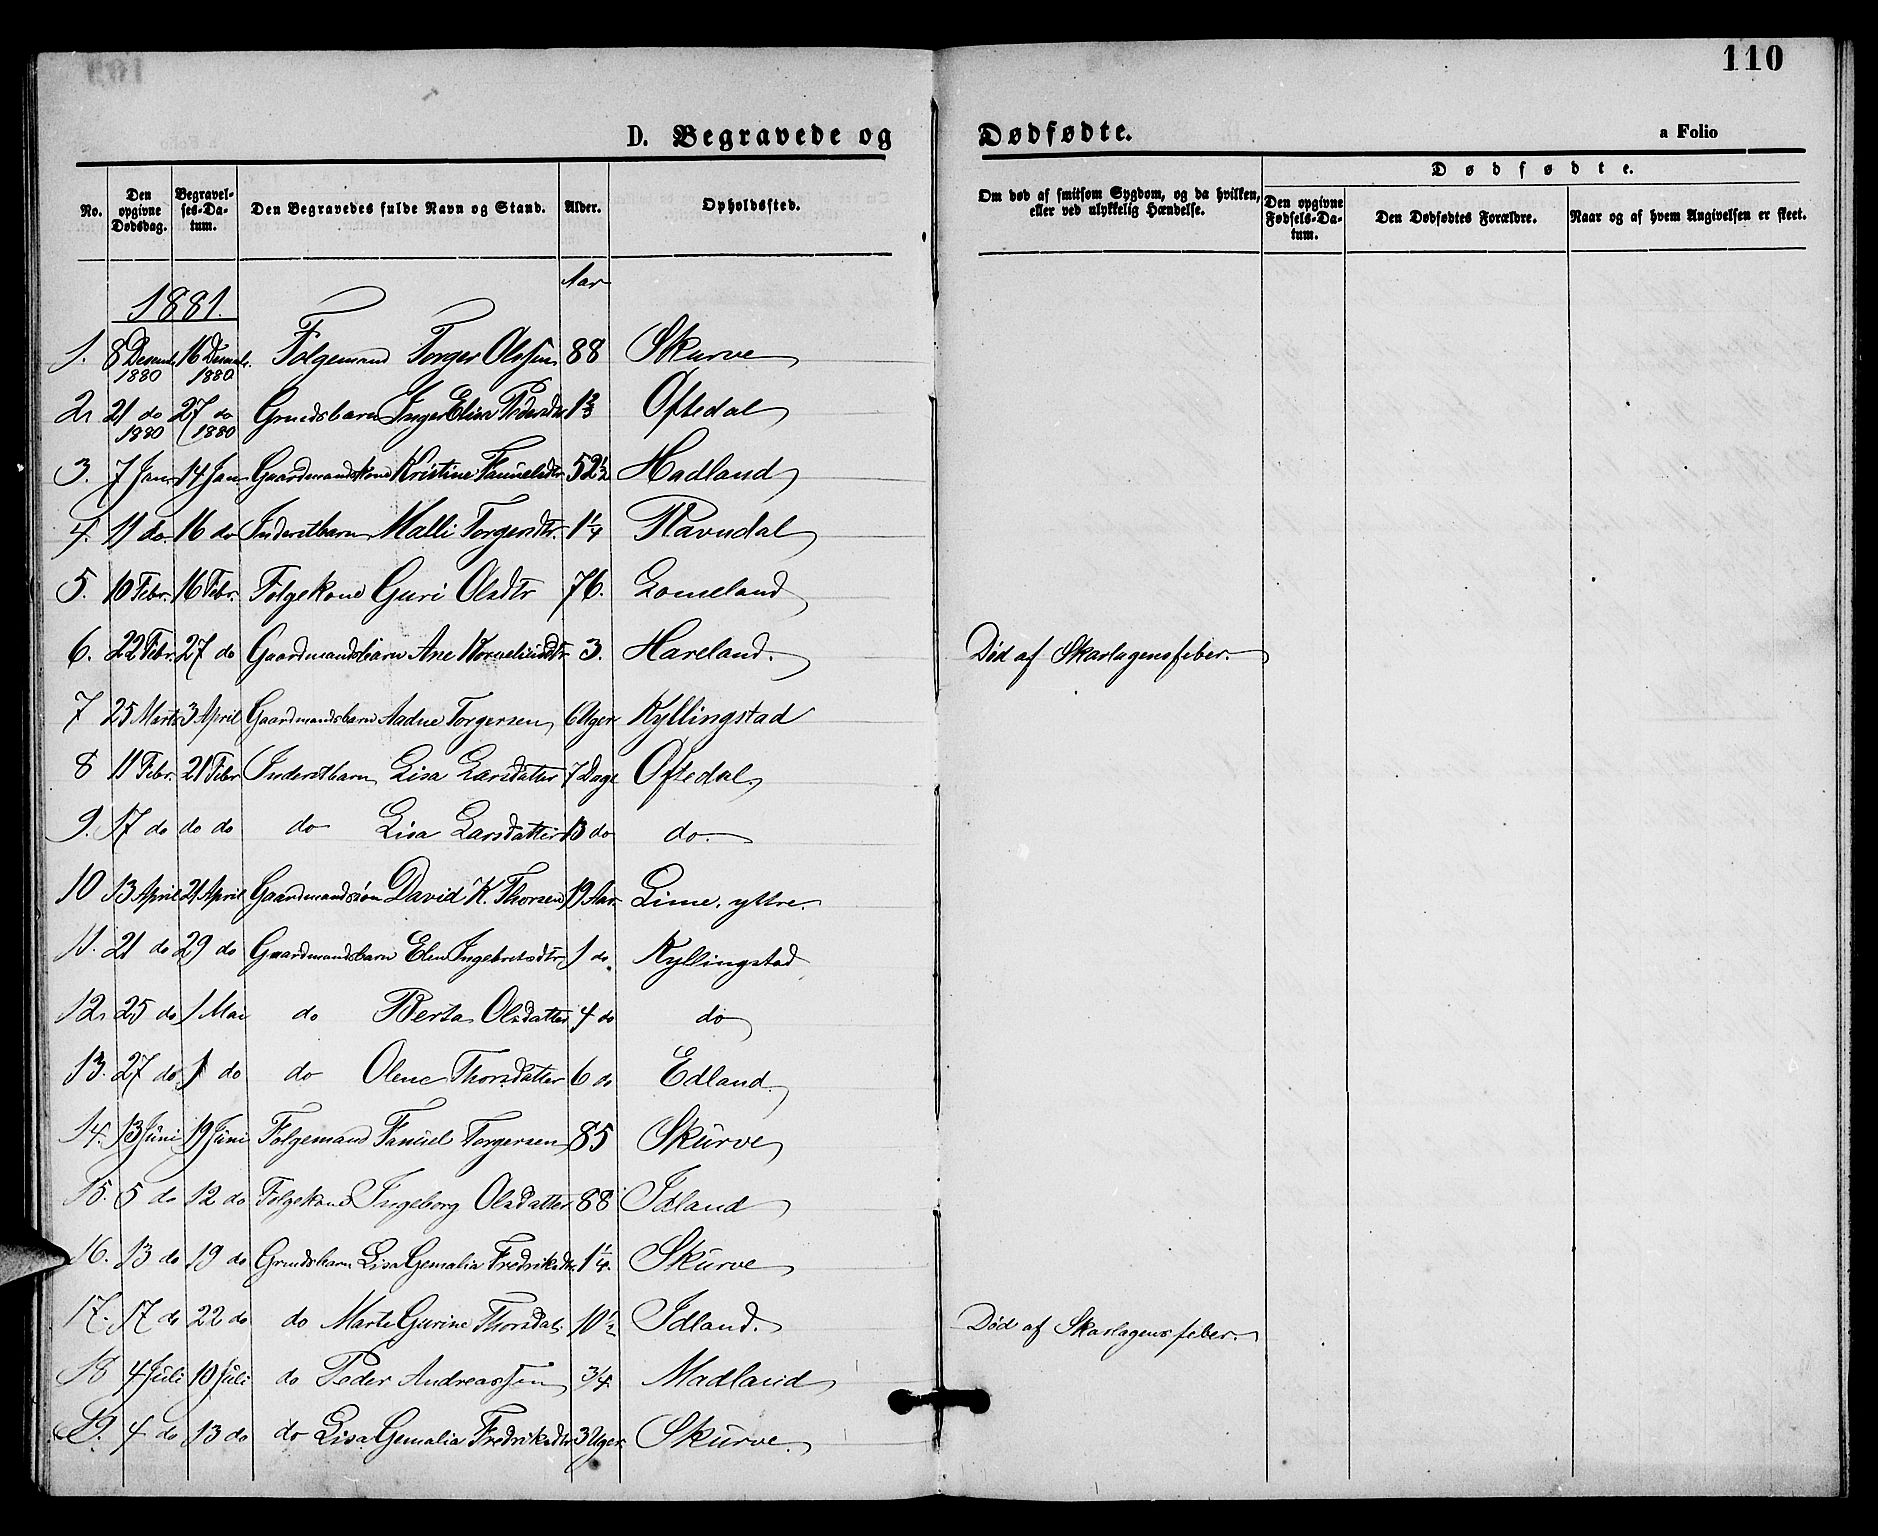 110
D. Begravede og Dødfødte. a Folio
No. Den opgivne Dødsdag. Begravelses-Datum. Den Begravedes fulde Navn og Stand. Alder. Opholdssted. Om død af smitsom Sygdom, og da hvilken, eller ved ulykkelig Hændelse. Dødfødte. Den opgivne Fødsels-Datum. Den Dødfødtes Forældre. Naar og af hvem Angivelsen er skeet.
Aar
1881.
1. 8 Decemb. 1880 16 Decemb. 1880 Folgemand Torger Olssen 88 Skurve
2. 21 do 1880 27 do 1880 Grudsbarn Inger Elisa Pedersdtr 1 2/3 Oftedal
3. 7 Janr 14 Jan Gaardmandskone Kristine Fanuelsdtr 52 1/2 Hadland
4. 11 do. 16 do Inderstbarn Malli Torgersdtr. 1 1/4 Ravndal
5. 10 Febr. 16 Febr. Folgekone Guri Olsdtr 76. Lomeland
6. 22 Febr. 27 do Gaardmandsbarn Ane Korneliusdtr 3. Hareland. Død af Skarlagensfeber.
7 25 Marts 3 April Gaardmandsbarn Aadne Torgersen 6 Uger Kyllingstad
8 11 Febr. 21 Febr Inderstbarn Lisa Larsdatter 7 Dage Oftedal.
9. 17 do do do do Lisa Larsdatter 13 do do.
10 13 April 21 April Gaardmandssøn David K. Thorsen 19 Aar. Lime, yttre.
11. 21 do 29 do Gaardmandsbarn Elen Ingebretsdtr. 1 do. Kyllingstad
12. 25 do 1 Mai do Berta Olsdatter 4 do do
13. 27 do 1 do do Olene Thorsdatter 6 do Edland.
14. 13 Juni 19 Juni Folgemand Fanuel Torgersen 85 Skurve
15. 5 do 12 do Folgekone Ingeborg Olsdatter 88 Idland
16. 13 do 19 do Grudsbarn Lisa Gemalia Fredriksdtr. 1 1/4. Skurve
17. 17 do 22 do do Marte Gurine Thorsdatr 10 1/2 Idland. Død af Skarlagensfeber.
18 4 Juli 10 Juli do Peder Andreassen 3/4. Madland
19. 4 do 13 do do Lisa Gemalia Fredriksdtr 3 Uger. Skurve.